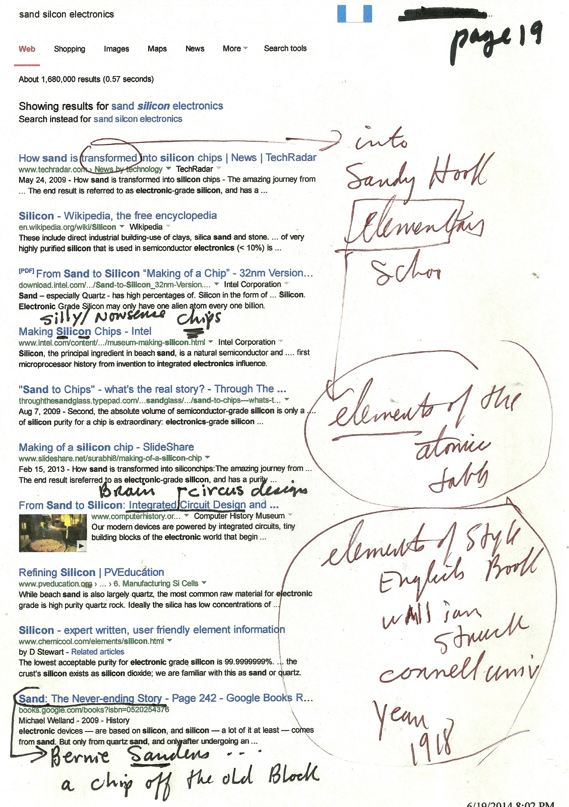 sand silcon electronics
page 19
Web Shopping Images Maps News More Search tools
About 1,680,000 results (0.57 seconds)
Showing results for sand silicon electronics
Search instead for sand silcon electronics
How sand is transformed into silicon chips | News | TechRadar
www.techradar.com › News by technology TechRadar
May 24, 2009 - How sand is transformed into silicon chips - The amazing journey from
... The end result is referred to as electronic-grade silicon, and has a ...
into
Sandy Hook
elementary
Schoo
Silicon - Wikipedia, the free encyclopedia
en.wikipedia.org/wiki/Silicon Wikipedia
These include direct industrial building-use of clays, silica sand and stone. ... of very
highly purified silicon that is used in semiconductor electronics (< 10%) is ...
[PDF] From Sand to Silicon “Making of a Chip” - 32nm Version...
download.intel.com/.../Sand-to-Silicon_32nm-Version.... Intel Corporation
Sand – especially Quartz - has high percentages of. Silicon in the form of ... Silicon.
Electronic Grade Silicon may only have one alien atom every one billion.
Silly/Nonsense chips
Making Silicon Chips - Intel
www.intel.com/content/.../museum-making-silicon.html Intel Corporation
Silicon, the principal ingredient in beach sand, is a natural semiconductor and .... first
microprocessor history from invention to integrated electronics influence.
"Sand to Chips" - what's the real story? - Through The ...
throughthesandglass.typepad.com/...sandglass/.../sand-to-chips---whats-t...
Aug 7, 2009 - Second, the absolute volume of semiconductor-grade silicon is only a ...
of silicon purity for a chip is extraordinary: electronics-grade silicon ...
elements of the
atomic
tabb
Making of a silicon chip - SlideShare
www.slideshare.net/surabhi8/making-of-a-silicon-chip
Feb 15, 2013 - How sand is transformed into siliconchips:The amazing journey from ...
The end result isreferred to as electronic-grade silicon, and has a purity ...
Brain circus design
From Sand to Silicon: Integrated Circuit Design and ...
www.computerhistory.or... Computer History Museum
Our modern devices are powered by integrated circuits, tiny
building blocks of the electronic world that begin ...
Refining Silicon | PVEducation
www.pveducation.org › ... › 6. Manufacturing Si Cells
While beach sand is also largely quartz, the most common raw material for electronic
grade is high purity quartz rock. Ideally the silica has low concentrations of ...
Silicon - expert written, user friendly element information
www.chemicool.com/elements/silicon.html
by D Stewart - Related articles
The lowest acceptable purity for electronic grade silicon is 99.9999999%. ... the
crust's silicon exists as silicon dioxide; we are familiar with this as sand or quartz.
elements of Style
English Book
William
Strunk
cornell univ
Year
1918
Sand: The Never-ending Story - Page 242 - Google Books R...
books.google.com/books?isbn=0520254376
Michael Welland - 2009 - History
electronic devices — are based on silicon, and silicon — a lot of it at least — comes
from sand. But only from quartz sand, and only after undergoing an ...
Bernie Sanders ...
a chip off the old Block
6/19/2014 8:02 PM